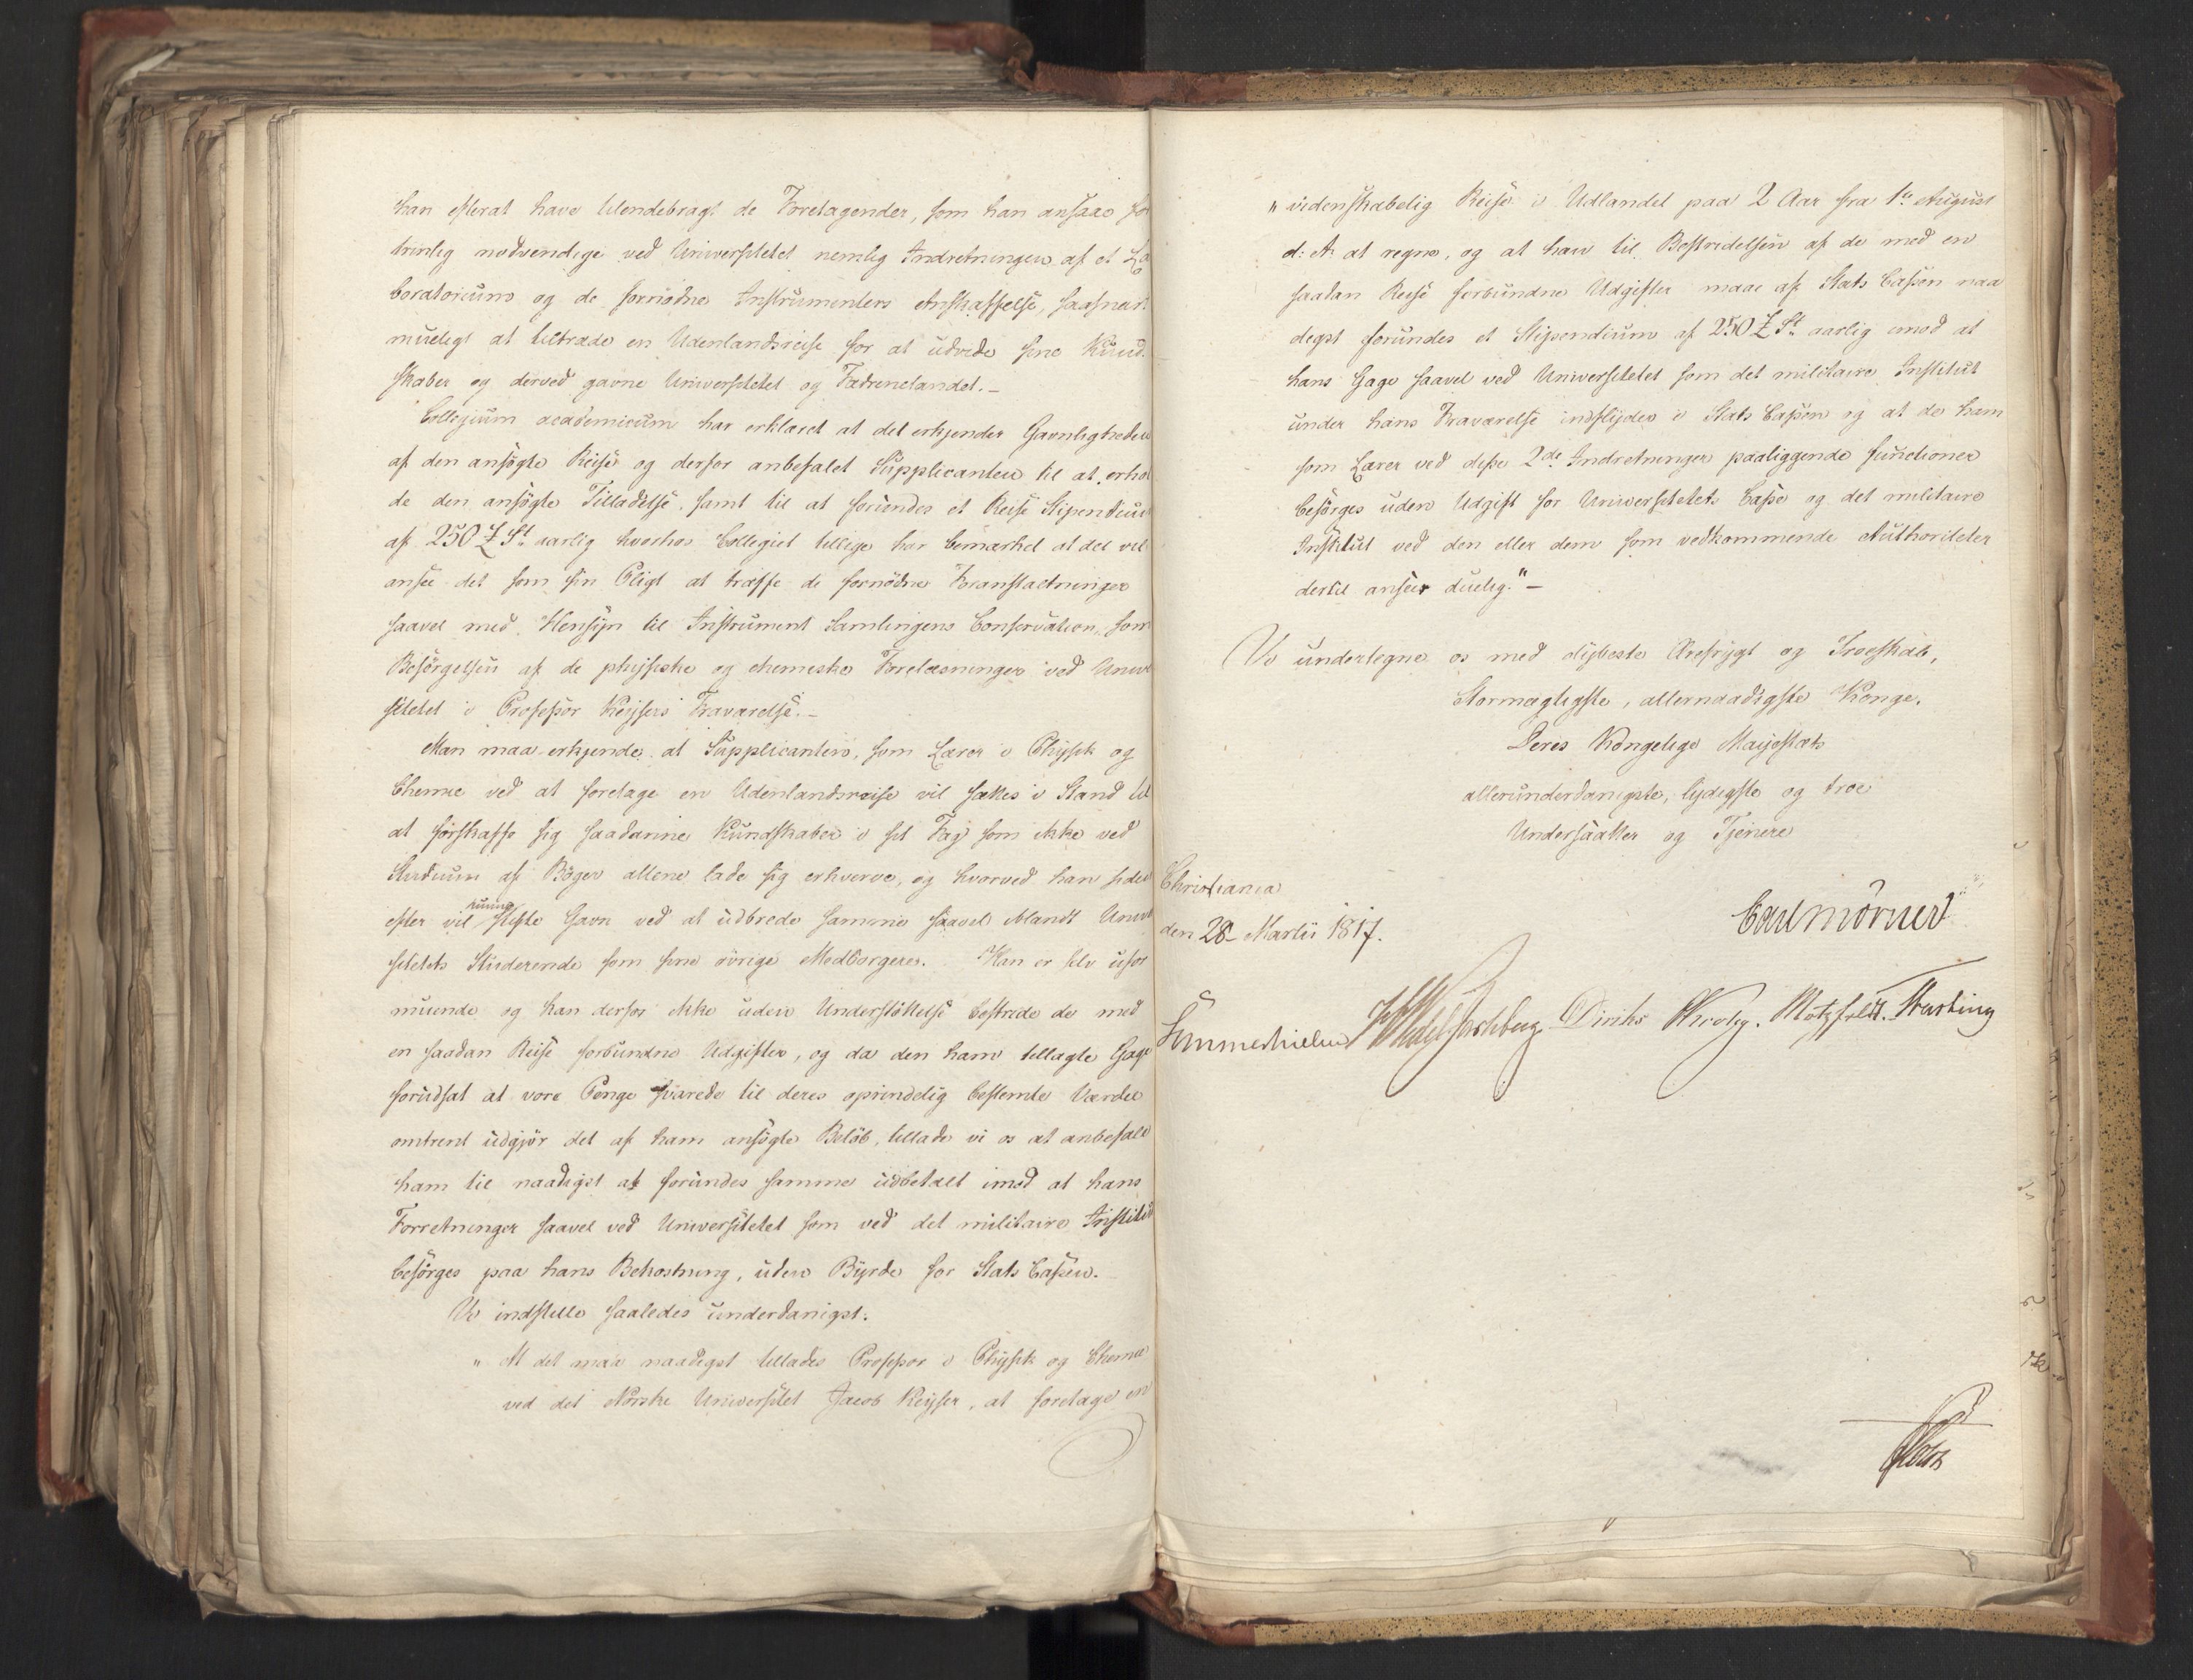 han efterat have tilendebragt de Foretagender, som han ansaae for
trinlig nødvendige ved Universitetet nemlig Indretningen af et La
boratorium og de fornødne Instrumenters Anskaffelse, saasnart
mueligt at tiltræde en Udenlandsreise for at udvide sine Kund-
skaber og derved gavne Universitetet og Fædrenelandet.-
Collegium academicum har erklæret at det erkjender Gavnligheden
af den ansøgte Reise og derfor anbefalet Supplicanten til at erhol
de den ansøgte Tilladelse, samt til at forundes et Reise Stipendium
af 250 £ St. aarlig hvorhos Collegiet tillige har bemærket at det vil
ansee det som sin Pligt at træffe de fornødne Foranstaltninger
saavel med Hensyn til Instrument Samlingens Conservation, som
Besørgelsen af de physiske og chemiske Forelæsninger ved Univer
sitetet i Professor Keysers Fraværelse.-
Man maa erkjende at Supplicanten, som Lærer i Physik og
Chemie ved at foretage en Udenlandsreise vil sættes i Stand til
at forskaffe sig saadanne Kundskaber i sit Fag som ikke ved
Studium af Bøger allene lade sig erhverve, og hvorved han siden
efter vil kunne stifte Gavn ved at udbrede samme saavel blandt Univer
sitetets Studerende som sine øvrige Medborgere. Han er selv ufor
muende og kan derfor ikke uden Understøttelse bestride de med
en saadan Reise forbundne Udgifter, og da den ham tillagte Gage
forudsat at vore Penge svarede til deres oprindelig bestemte Værdie
omtrent udgjør det af ham ansøgte Beløb, tillade vi os at anbefale
ham til naadigst at forundes samme udbetalt imod at hans
Forretninger saavel ved Universitetet som ved det militaire Institut
besørges paa hans Bekostning, uden Byrde for Stats Cassen.
Vi indstille saaledes underdanigst:
" At det maa naadigst tillades Professor i Physik og Chemie
ved det Norske Universitet Jacob Keyser, at foretage en
" videnskabelig Reise i Udlandet paa 2 Aar fra 1te August
d: A: at regne, og at han til Bestridelsen af de med en
saadan Reise forbundne Udgifter maae af Stats Cassen naa
digst forundes et Stipendium af 250 £ St. aarlig imod at
hans Gage saavel ved Universitetet som det militaire Institut
under hans Fraværelse indflyder i Stats Cassen og at de ham
som Lærer ved disse 2de Indretninger paaliggende Functioner
besørges uden Udgift for Universitetets Casse og det militaire
Institut ved den eller dem som vedkommende Authoriteter
dertil anseer duelig."-
Vi undertegne os med dybeste Ærefrygt og Troeskab,
Stormægtigste, allernaadigste Konge,
Deres Kongelige Majestæts
allerunderdanigste, lydigste og troe
Undersaatter og Tjenere
Christiania
den 28- Martii 1817.
Carl Mörner
Sommerhielm Wedel Jarlsberg Diriks Krogh. Motzfeldt. Fasting
Holst